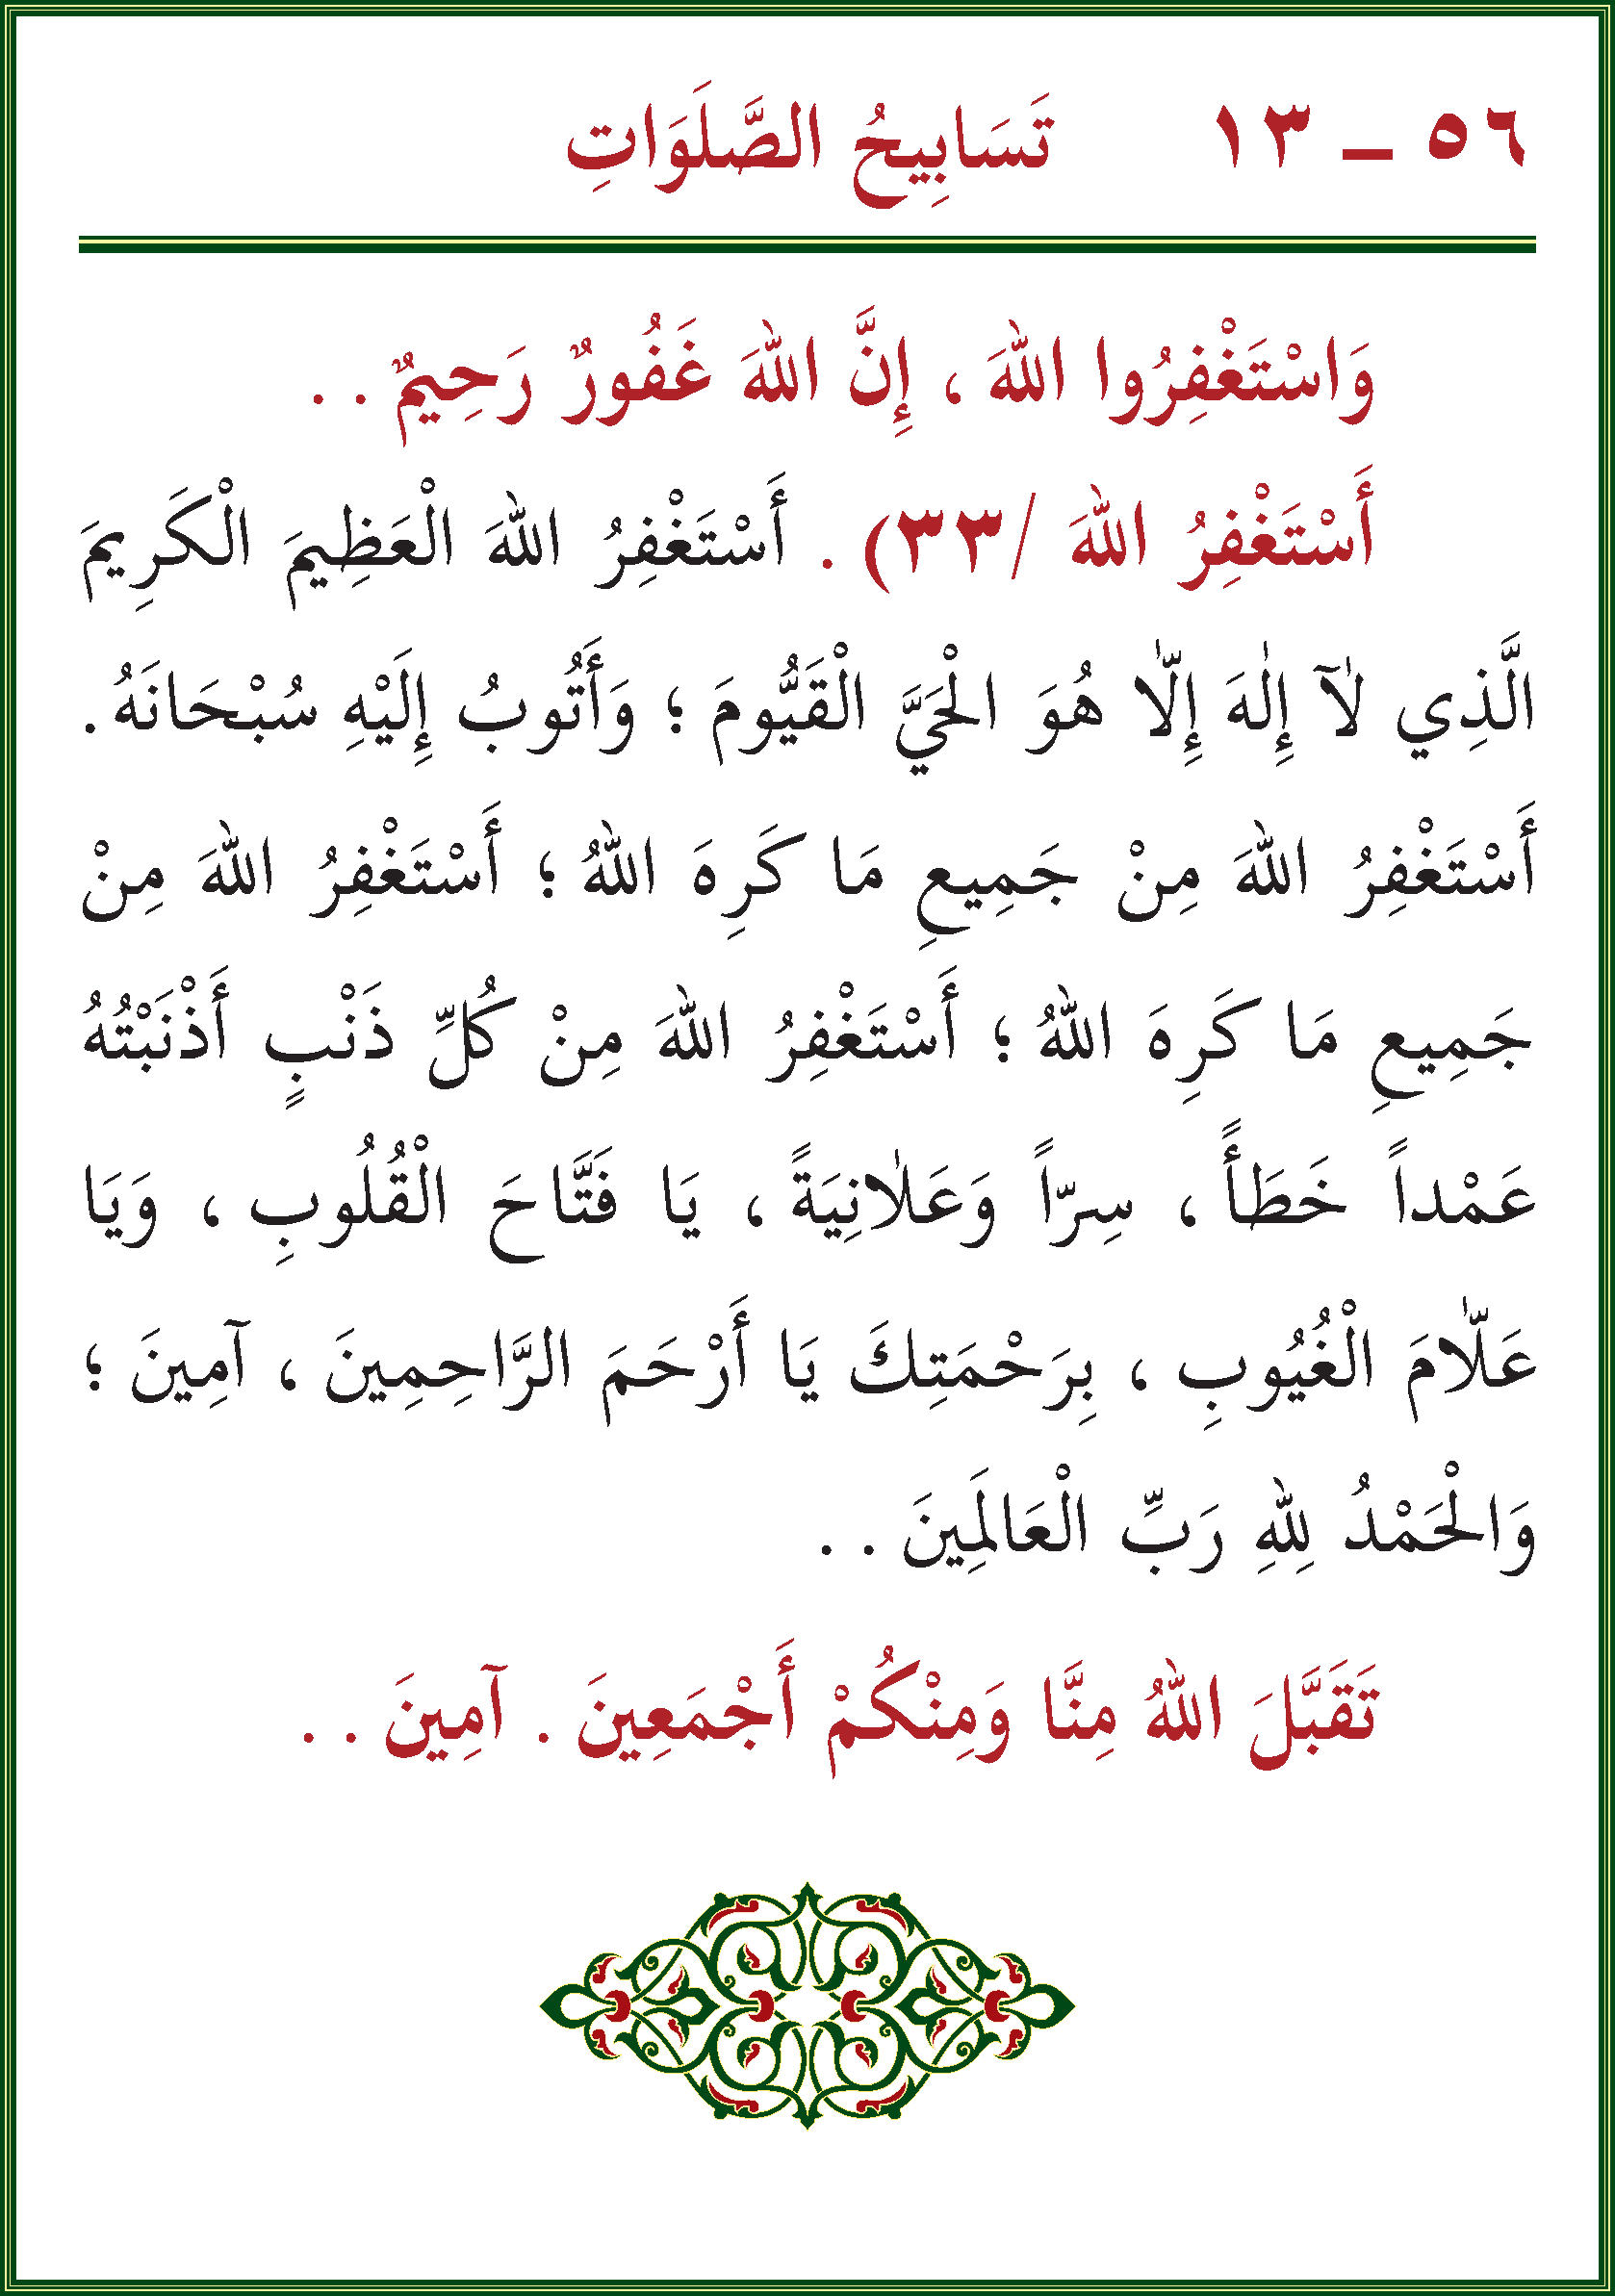 ٥٦ ــ ١٣ تَسَابِيحُ الصَّلَوَاتِ
وَاسْتَغْفِرُوا اللهَ ، إِنَّ اللهَ غَفُورٌ رَحِيمٌ . .
أَسْتَغْفِرُ اللهَ /٣٣) . أَسْتَغْفِرُ اللهَ الْعَظِيمَ الْكَرِيمَ
الَّذِي لآَ إِلٰهَ إِلّٰا هُوَ الْحَيَّ الْقَيُّومَ ؛ وَأَتُوبُ إِلَيْهِ سُبْحَانَهُ .
أَسْتَغْفِرُ اللهَ مِنْ جَمِيعِ مَا كَرِهَ اللهُ ؛ أَسْتَغْفِرُ اللهَ مِنْ
جَمِيعِ مَا كَرِهَ اللهُ ؛ أَسْتَغْفِرُ اللهَ مِنْ كُلِّ ذَنْبٍ أَذْنَبْتُهُ
عَمْداً خَطَأً ، سِرّاً وَعَلٰانِيَةً ، يَا فَتَّاحَ الْقُلُوبِ ، وَيَا
عَلّٰامَ الْغُيُوبِ ، بِرَحْمَتِكَ يَا أَرْحَمَ الرَّاحِمِينَ ، آمِينَ ؛
وَالْحَمْدُ لِلهِ رَبِّ الْعَالَمِينَ . .
تَقَبَّلَ اللهُ مِنَّا وَمِنْكُمْ أَجْمَعِينَ . آمِينَ . .